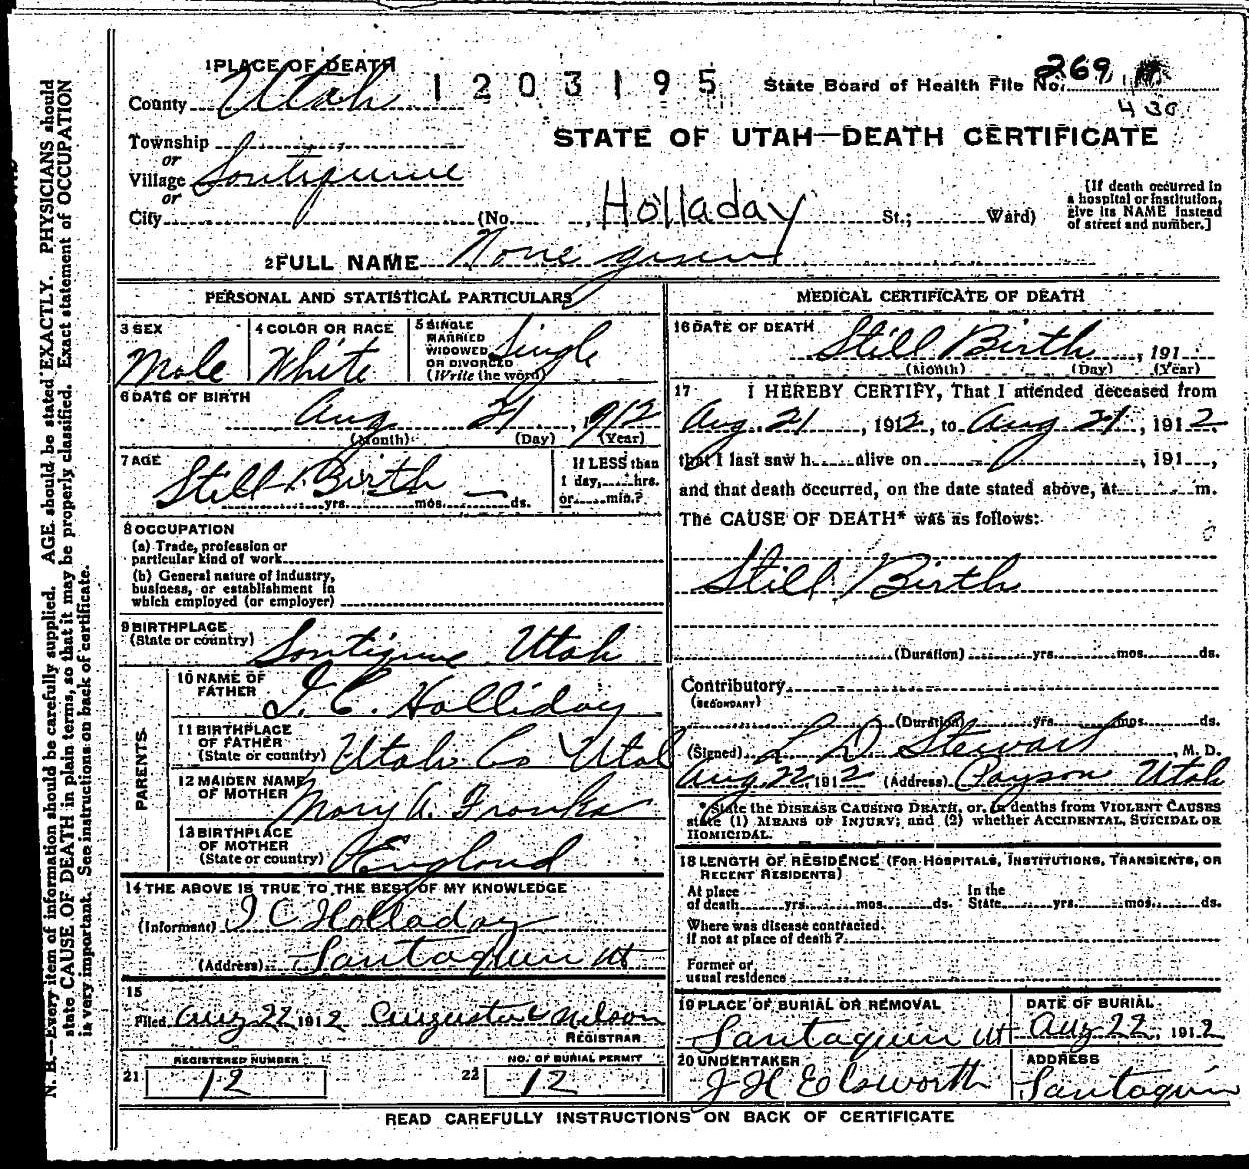 1 PLACE OF DEATH
County Utah
1203195
State Board of Health File No. 269
430
STATE OF UTAH—DEATH CERTIFICATE
Township
or
Village Santiquine
or
City (No. , Holladay St.; Ward)
[If death occurred in a hospital or institution, give its NAME instead of street and number.]
2 FULL NAME None given
PERSONAL AND STATISTICAL PARTICULARS
3 SEX Male
4 COLOR OR RACE White
5 SINGLE MARRIED WIDOWED OR DIVORCED (Write the word) Single
6 DATE OF BIRTH Aug 21, 1912
(Month) (Day) (Year)
7 AGE Still Birth
yrs. mos. ds.
If LESS than 1 day, hrs. or min.?
8 OCCUPATION
(a) Trade, profession or particular kind of work
(b) General nature of industry, business, or establishment in which employed (or employer)
9 BIRTHPLACE (State or country) Santiquine Utah
PARENTS
10 NAME OF FATHER I. C. Holliday
11 BIRTHPLACE OF FATHER (State or country) Utah Co Utah
12 MAIDEN NAME OF MOTHER Mary A. Franks
13 BIRTHPLACE OF MOTHER (State or country) England
14 THE ABOVE IS TRUE TO THE BEST OF MY KNOWLEDGE
(Informant) I C Holladay
(Address) Santaquin Ut
15
Filed Aug 22 1912 Augusta Nelson
REGISTRAR
REGISTERED NUMBER
21 12
NO. OF BURIAL PERMIT
22 12
MEDICAL CERTIFICATE OF DEATH
16 DATE OF DEATH Still Birth, 191
(Month) (Day) (Year)
17 I HEREBY CERTIFY, That I attended deceased from
Aug. 21, 1912, to Aug 21, 1912,
that I last saw h alive on , 191 ,
and that death occurred, on the date stated above, at m.
The CAUSE OF DEATH* was as follows:
Still Birth
(Duration) yrs. mos. ds.
Contributory
(SECONDARY)
(Duration) yrs. mos. ds.
(Signed) L D Stewart, M. D.
Aug 22, 1912 (Address) Payson Utah
*State the DISEASE CAUSING DEATH, or, in deaths from VIOLENT CAUSES
state (1) MEANS OF INJURY; and (2) whether ACCIDENTAL, SUICIDAL OR
HOMICIDAL.
18 LENGTH OF RESIDENCE (FOR HOSPITALS, INSTITUTIONS, TRANSIENTS, OR
RECENT RESIDENTS)
At place of death yrs. mos. ds. In the State yrs. mos. ds.
Where was disease contracted, if not at place of death?
Former or usual residence
19 PLACE OF BURIAL OR REMOVAL Santaquin Ut
DATE OF BURIAL Aug 22, 1912
20 UNDERTAKER J H Elsworth
ADDRESS Santaquin
READ CAREFULLY INSTRUCTIONS ON BACK OF CERTIFICATE
N. B.—Every item of information should be carefully supplied. AGE should be stated EXACTLY. PHYSICIANS should
state CAUSE OF DEATH in plain terms, so that it may be properly classified. Exact statement of OCCUPATION
is very important. See instructions on back of certificate.